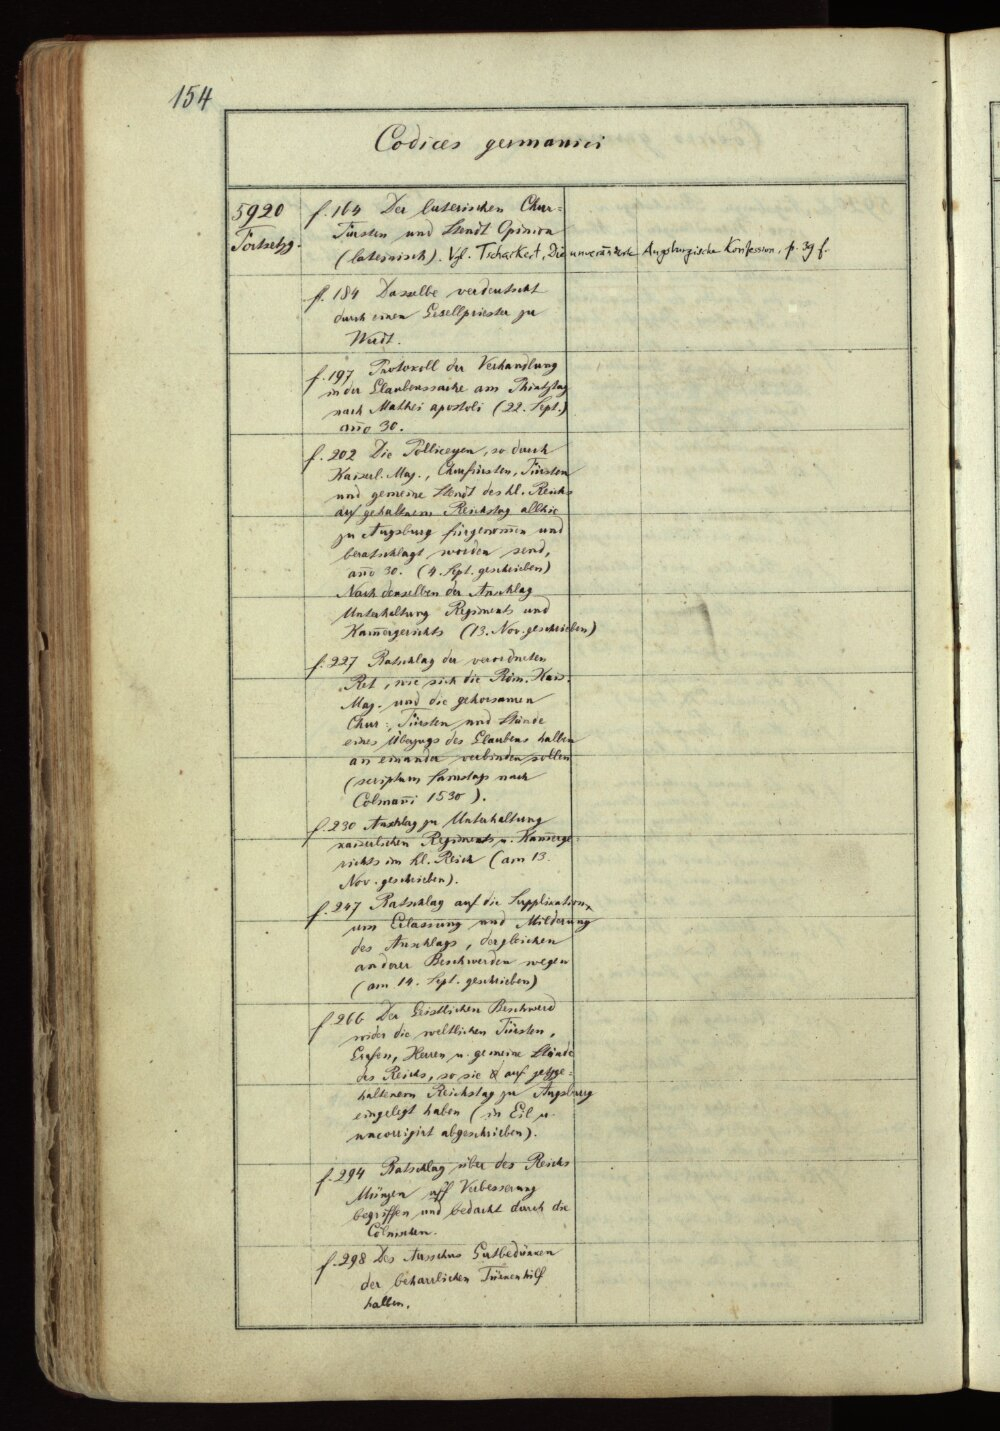 154
Codices germanici
5920
Fortsetzg.
f. 164 Der luterischen Chur=
Fürsten und Stendt Opinion
(lateinisch). Vgl. Tschackert, Die unveränderte Augsburgische Konfession, p. 39 f.
f. 184 Dasselbe verdeutscht
durch einen Gesellpriester zu
Werdt.
f. 197 Protokoll der Verhandlung
in der Glaubenssache am Phintztag
nach Mathei apostoli (22. Sept.)
an̄o 30.
f. 202 Die Polliceyen, so durch
Kaiserl. Maj., Churfürsten, Fürsten
und gemeine Stendt des hl. Reichs
auf gehaltnem Reichstag allhie
zu Augsburg fürgenom̄en und
beratschlagt worden send,
an̄o 30. (4. Sept. geschrieben)
Nach denselben der Anschlag
Unterhaltung Regiments und
Kam̄ergerichts (13. Nov. geschrieben)
f. 227 Ratschlag der verordneten
Ret, wie sich die Röm. Kais.
Maj. und die gehorsamen
Chur=, Fürsten und Stände
eines Überzugs des Glaubens halben
an einander verbinden sollen
(scriptum Samstags nach
Colman̄i 1530).
f. 230 Anschlag zu Unterhaltung
kaiserlichen Regiments u. Kam̄erge=
richts im hl. Reich (am 13.
Nov. geschrieben).
f. 247 Ratschlag auf die Supplikation
um Erlassung und Milderung
des Anschlags, dergleichen
anderer Beschwerden wegen
(am 14. Sept. geschrieben)
f. 266 Der Geistlichen Beschwerd
wider die weltlichen Fürsten,
Grafen, Herren u. gemeine Stände
des Reichs, so sie auf jetzge=
haltenem Reichstag zu Augsburg
eingelegt haben (in Eil u.
uncorrigirt abgeschrieben).
f. 294 Ratschlag über des Reichs
Münzen uff Verbesserung
begriffen und bedacht durch die
Cölnischen.
f. 298 Des Ausschus Gutbedünken
der beharrlichen Türkenhilf
halben.